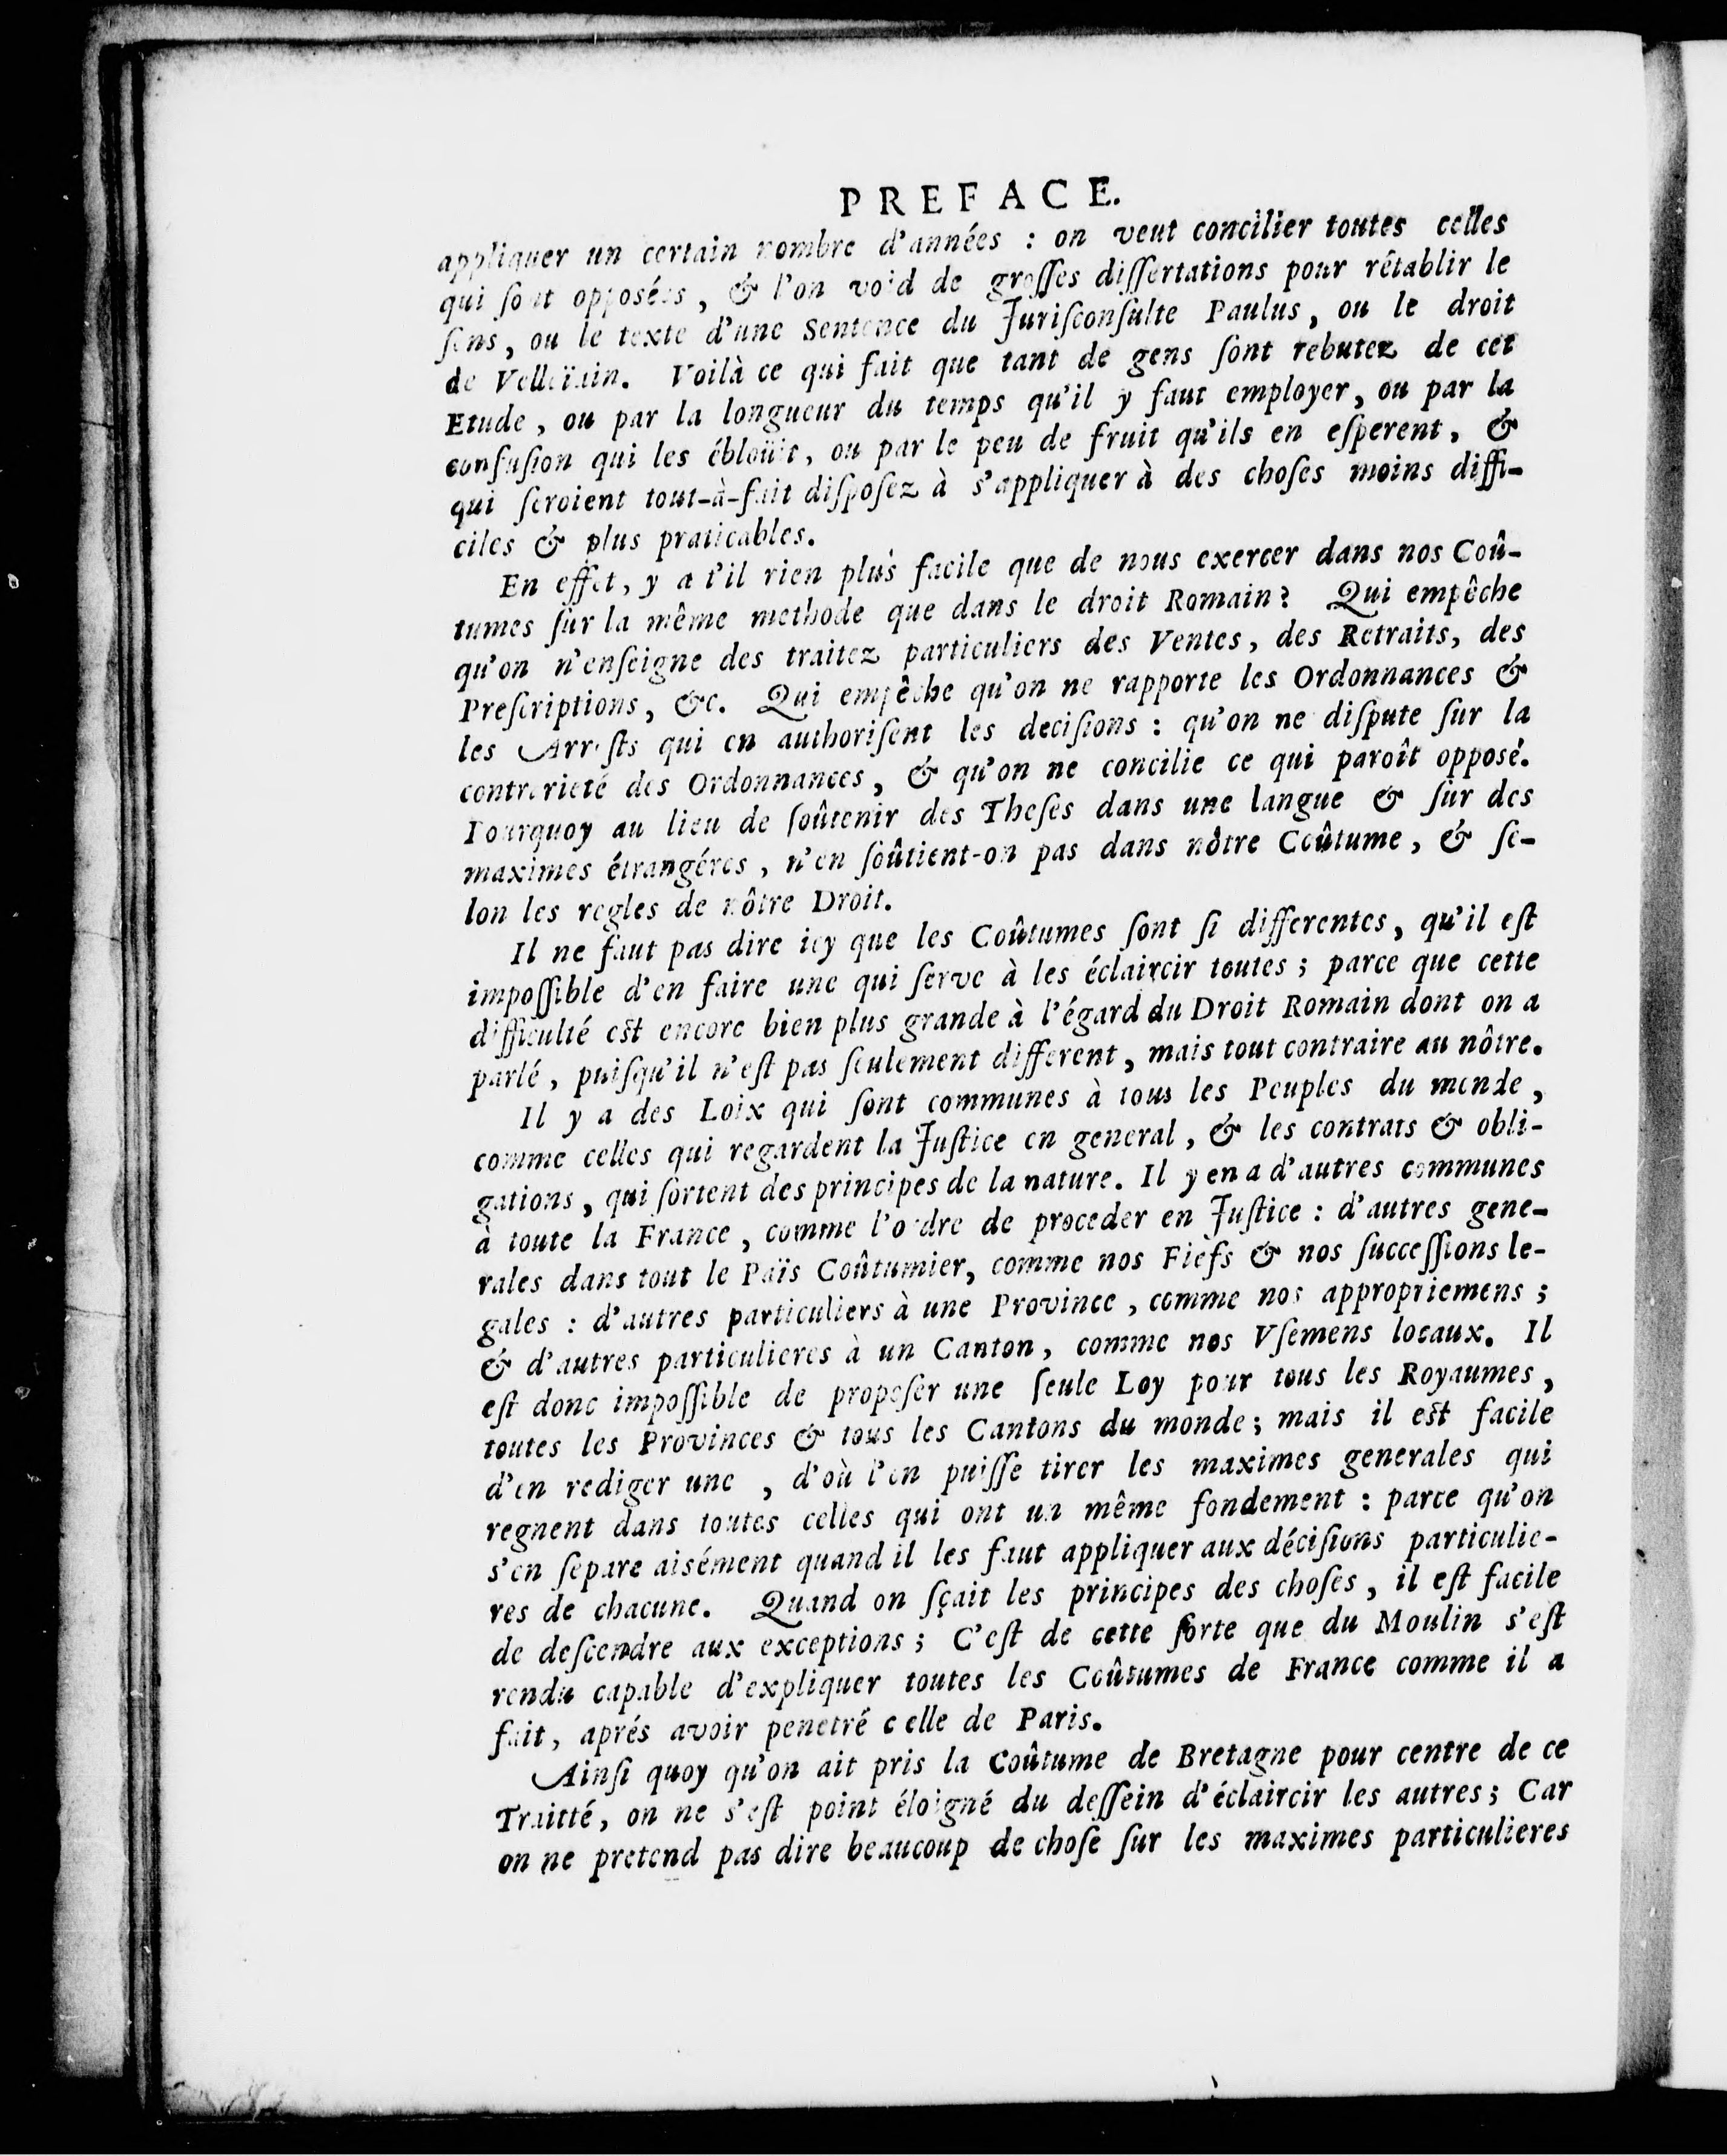 PREFACE.
appliquer un certain nombre d'années : on veut concilier toutes celles
qui ſont opposées, & l'on void de groſſes diſſertations pour rétablir le
ſens, ou le texte d'une Sentence du Juriſconſulte Paulus, ou le droit
de Velleïain. Voilà ce qui fait que tant de gens ſont rebutez de cet
Etude, ou par la longueur du temps qu'il y faut employer, ou par la
confuſion qui les éblouït, ou par le peu de fruit qu'ils en eſperent, &
qui ſeroient tout-à-fait diſpoſez à s'appliquer à des choſes moins diffi-
ciles & plus praticables.
En effet, y a t'il rien plus facile que de nous exercer dans nos Coû-
tumes ſur la même methode que dans le droit Romain? Qui empêche
qu'on n'enſeigne des traitez particuliers des Ventes, des Retraits, des
Preſcriptions, &c. Qui empêche qu'on ne rapporte les Ordonnances &
les Arreſts qui en authoriſent les deciſions : qu'on ne diſpute ſur la
contrarieté des Ordonnances, & qu'on ne concilie ce qui paroît opposé.
Pourquoy au lieu de ſoûtenir des Theſes dans une langue & ſur des
maximes étrangéres, n'en ſoûtient-on pas dans nôtre Coûtume, & ſe-
lon les regles de nôtre Droit.
Il ne faut pas dire icy que les Coûtumes ſont ſi differentes, qu'il eſt
impoſſible d'en faire une qui ſerve à les éclaircir toutes ; parce que cette
difficulté est encore bien plus grande à l'égard du Droit Romain dont on a
parlé, puiſqu'il n'eſt pas ſeulement different, mais tout contraire au nôtre.
Il y a des Loix qui ſont communes à tous les Peuples du monde,
comme celles qui regardent la Juſtice en general, & les contrats & obli-
gations, qui ſortent des principes de la nature. Il y en a d'autres communes
à toute la France, comme l'ordre de proceder en Juſtice : d'autres gene-
rales dans tout le Païs Coûtumier, comme nos Fiefs & nos ſucceſſions le-
gales : d'autres particuliers à une Province, comme nos appropriemens ;
& d'autres particulieres à un Canton, comme nos Vſemens locaux. Il
eſt donc impoſſible de propoſer une ſeule Loy pour tous les Royaumes,
toutes les Provinces & tous les Cantons du monde ; mais il est facile
d'en rediger une, d'où l'on puiſſe tirer les maximes generales qui
regnent dans toutes celles qui ont un même fondement : parce qu'on
s'en ſepare aisément quand il les faut appliquer aux déciſions particulie-
res de chacune. Quand on ſçait les principes des choſes, il eſt facile
de deſcendre aux exceptions ; C'eſt de cette ſorte que du Moulin s'eſt
rendu capable d'expliquer toutes les Coûtumes de France comme il a
fait, aprés avoir penetré celle de Paris.
Ainſi quoy qu'on ait pris la Coûtume de Bretagne pour centre de ce
Traitté, on ne s'eſt point éloigné du deſſein d'éclaircir les autres ; Car
on ne pretend pas dire beaucoup de choſe ſur les maximes particulieres